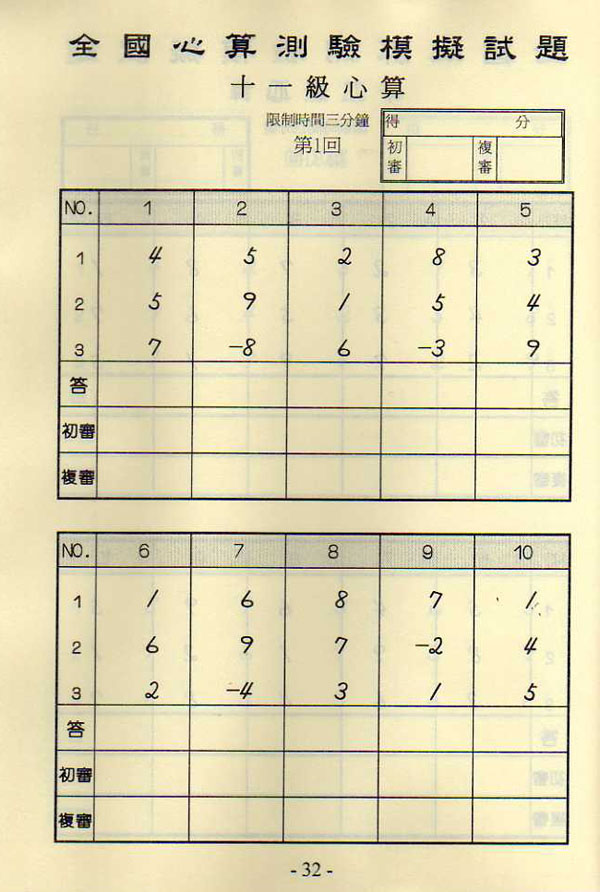 全國心算測驗模擬試題
十一級心算
限制時間三分鐘
第1回
得 分
初審 複審
NO. 1 2 3 4 5
1 4 5 2 8 3
2 5 9 1 5 4
3 7 -8 6 -3 9
答
初審
複審
NO. 6 7 8 9 10
1 1 6 8 7 1
2 6 9 7 -2 4
3 2 -4 3 1 5
答
初審
複審
- 32 -